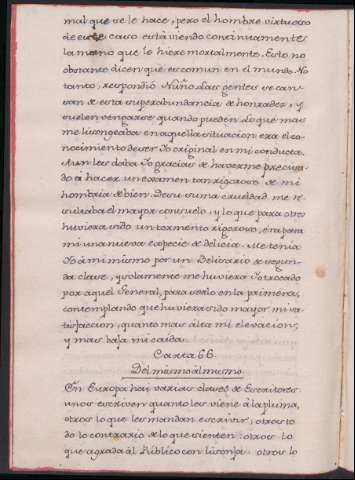 mal que se le hace, pero el hombre virtuoso
de este caso està viendo continuamente
la mano que lo hiere mortalmente. Esto no
obstante dicen que es comun en el mundo. No
tanto, respondió Nuño. Las gentes se can-
san de esta superabundancia de honrades, y
suelen vengarse quando pueden. Lo que mas
me lisongeaba en aquella situacion era el co-
nocimiento de ser Yo original en mi conducta.
Aun les daba Yo gracias de haverme precisa-
do à hacer un examen tan rigoroso de mi
hombria de bien. De su suma crueldad me re-
sultaba el mayor consuelo, y lo que para otro
huviera sido un tormento rigoroso, era para
mi una nueva especie de delicia. Me tenia
Yo à mi mismo por un Belisario de segun-
da clase, y solamente me huviera Yo trocado
por aquel General, para serlo en la primera,
contemplando que huviera sido mayor mi sa-
tisfaccion, quanto mas alta mi elevacion,
y mas baja mi caida.
Carta 66
Del mismo al mismo
En Europa hai varias clases de Escritores:
unos escriven quanto les viene à la pluma,
otros lo que les mandan escrivir; otros to-
do lo contrario de lo que sienten: otros lo
que agrada al Publico con lisonja: otros lo